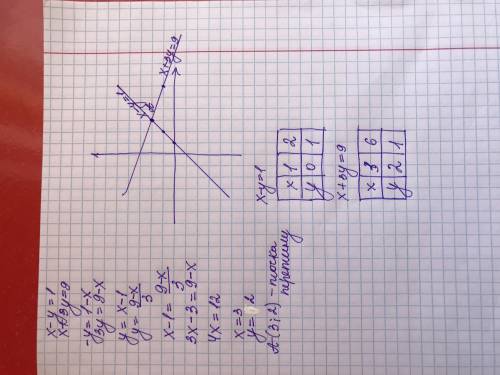 x-y=1
x+3y=9
-y=1-x
3y=9-x
y=x-1
y=9-x/3
x-1=9-x/3
3x-3=9-x
4x=12
x=3
y=2
A(3;2)-точка
перетину
x-y=1
x 1 2
y 0 1
x+3y=9
x 3 6
y 2 1
x-y=1
x+3y=9